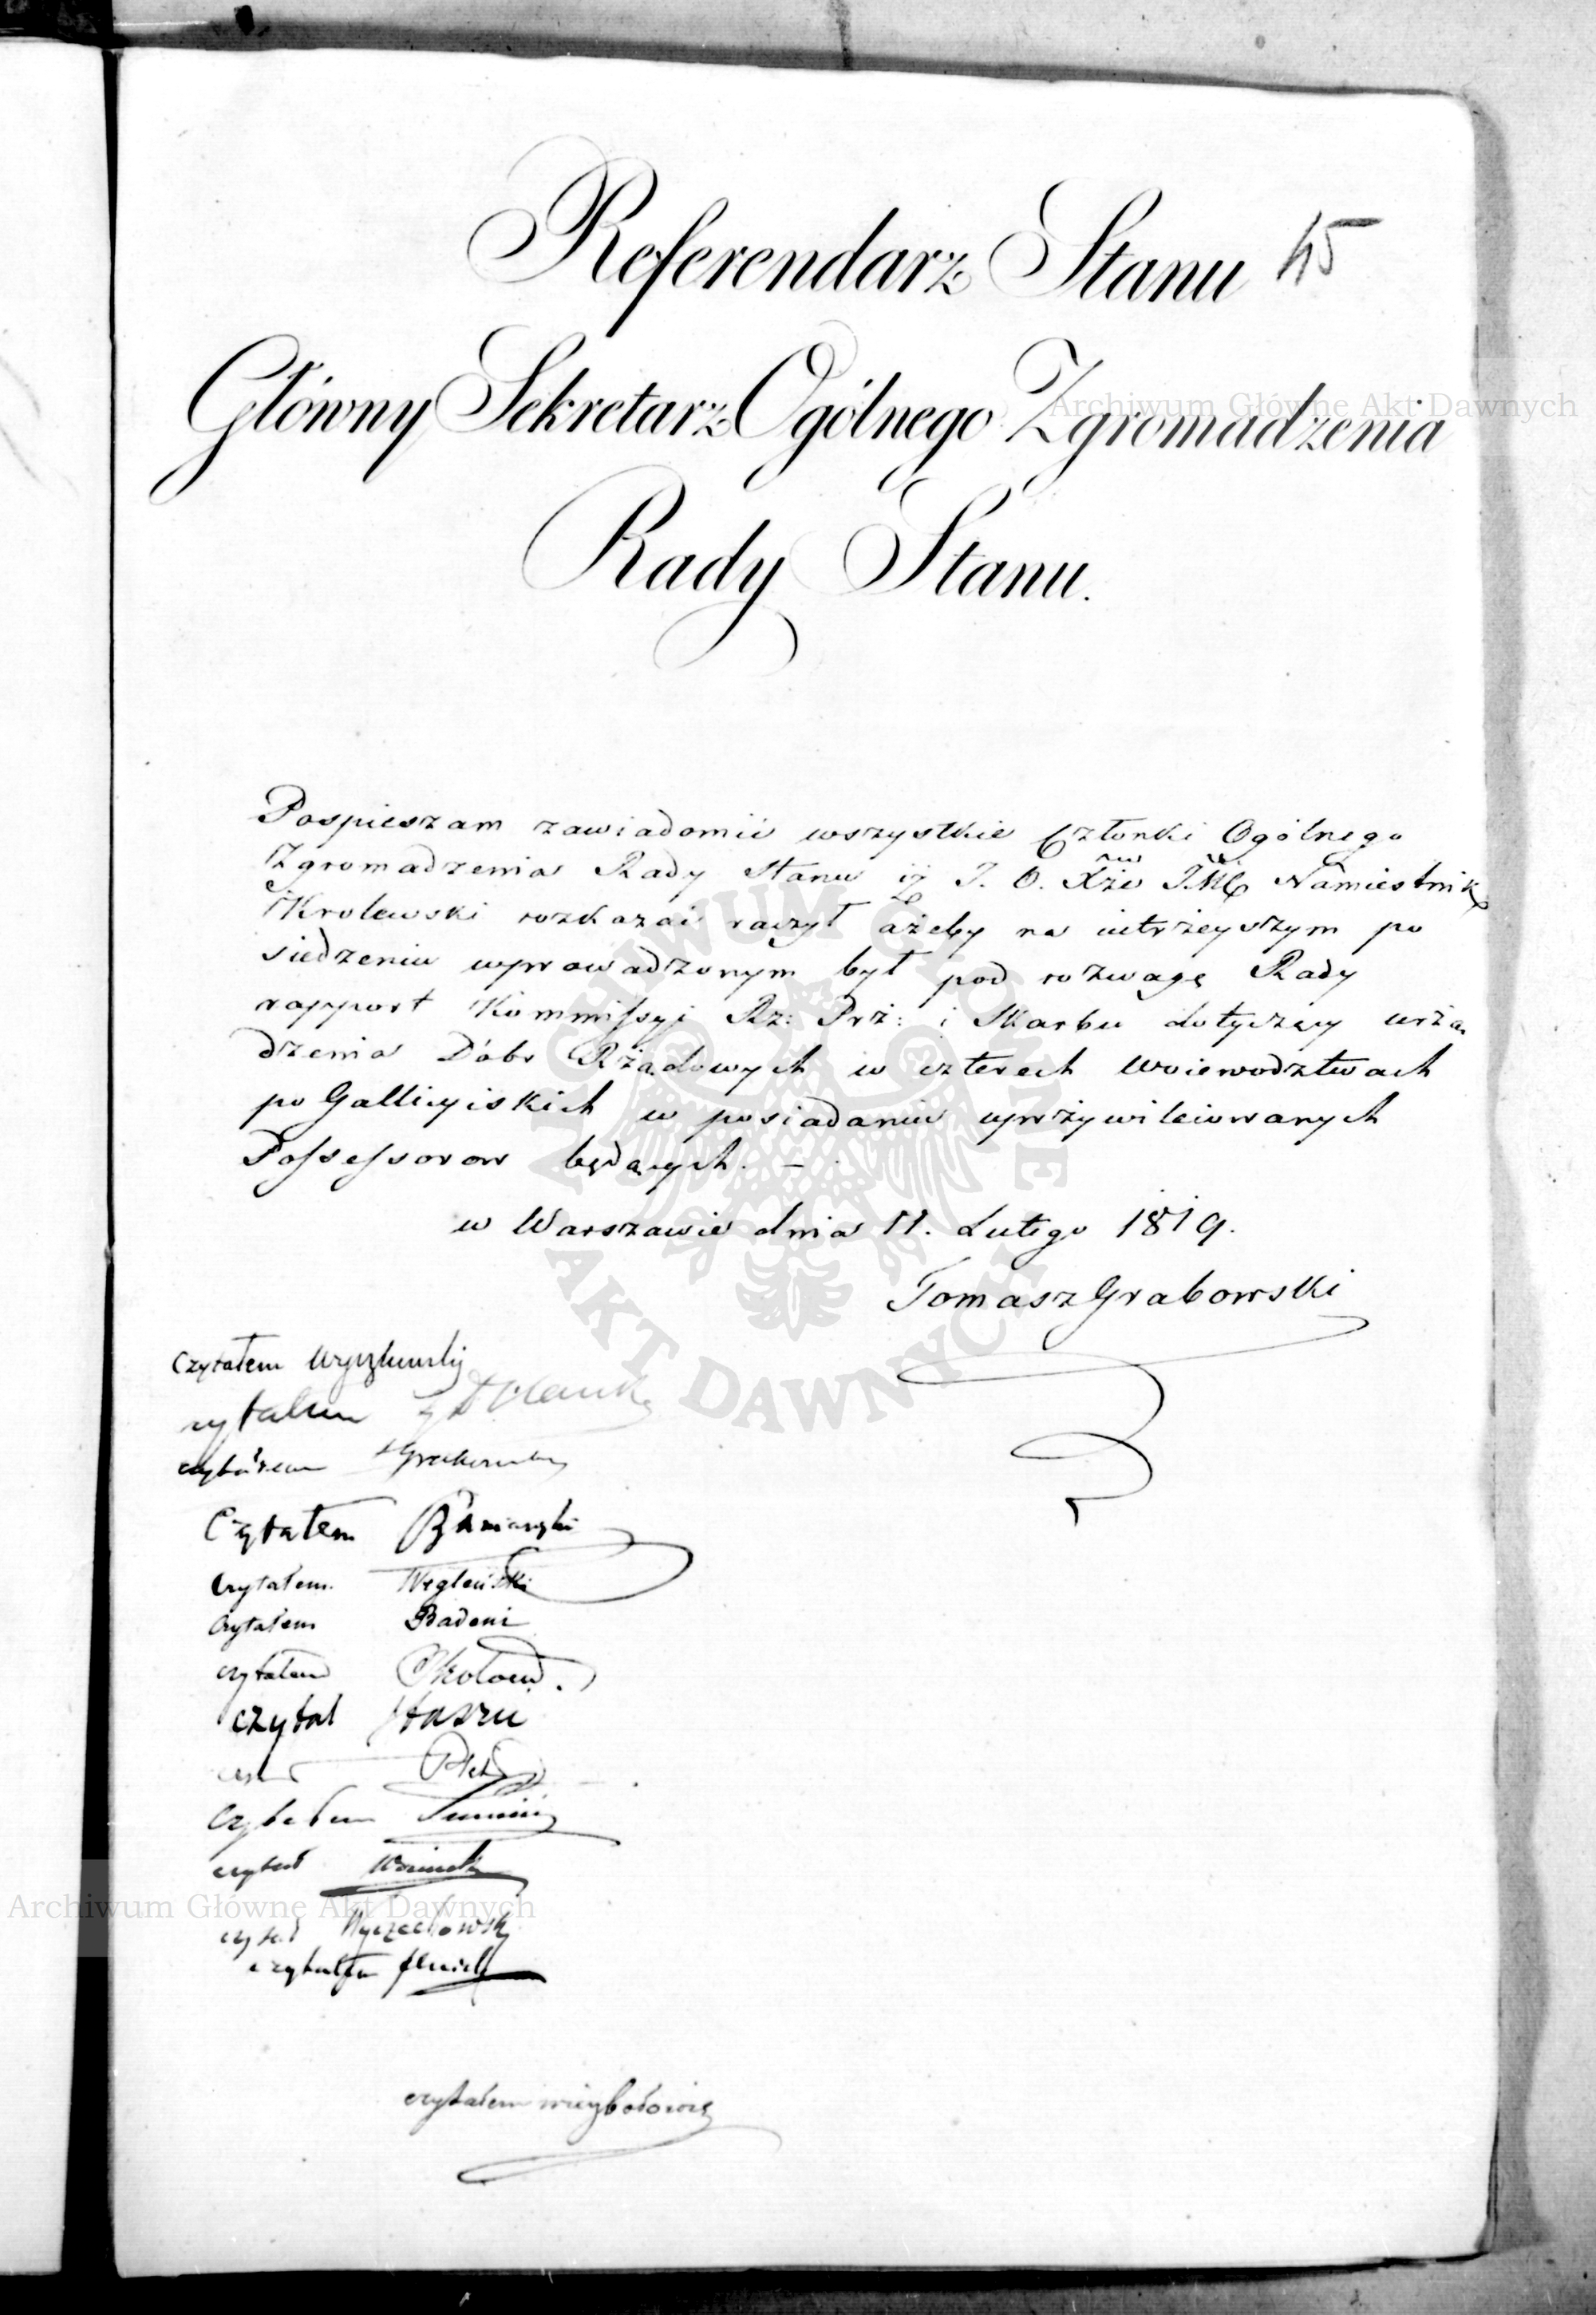 Referendarz Stanu 45
Główny Sekretarz Ogólnego Zgromadzenia
Rady Stanu.
Pospieszam zawiadomić wszystkie Członki Ogólnego
Zgromadzenia Rady Stanu iż J. O. Xże JMC Namiestnik
Krolewski rozkazać raczył ażeby na iutrzeyszym po
siedzeniu wprowadzonym był pod rozwagę Rady
rapport Kommissyi Rz: Prz: i Skarbu dotyczący urzą
dzenia Dóbr Rządowych w czterech Woiewodztwach
po Gallicyiskich w posiadaniu uprzywileiowanych
Possessorow będących. –
w Warszawie dnia 11. Lutego 1819.
Tomasz Grabowski
Czytałem
czytałem
czytałem Grabowski
Czytałem
Czytałem Węgleński
Czytałem Badeni
czytałem
czytał Staszic
Czytałem
czytał Woźnicki
czytał Wyczechowski
czytałem
czytałem
Archiwum Główne Akt Dawnych
Archiwum Główne Akt Dawnych
ARCHIWUM GŁÓWNE AKT DAWNYCH